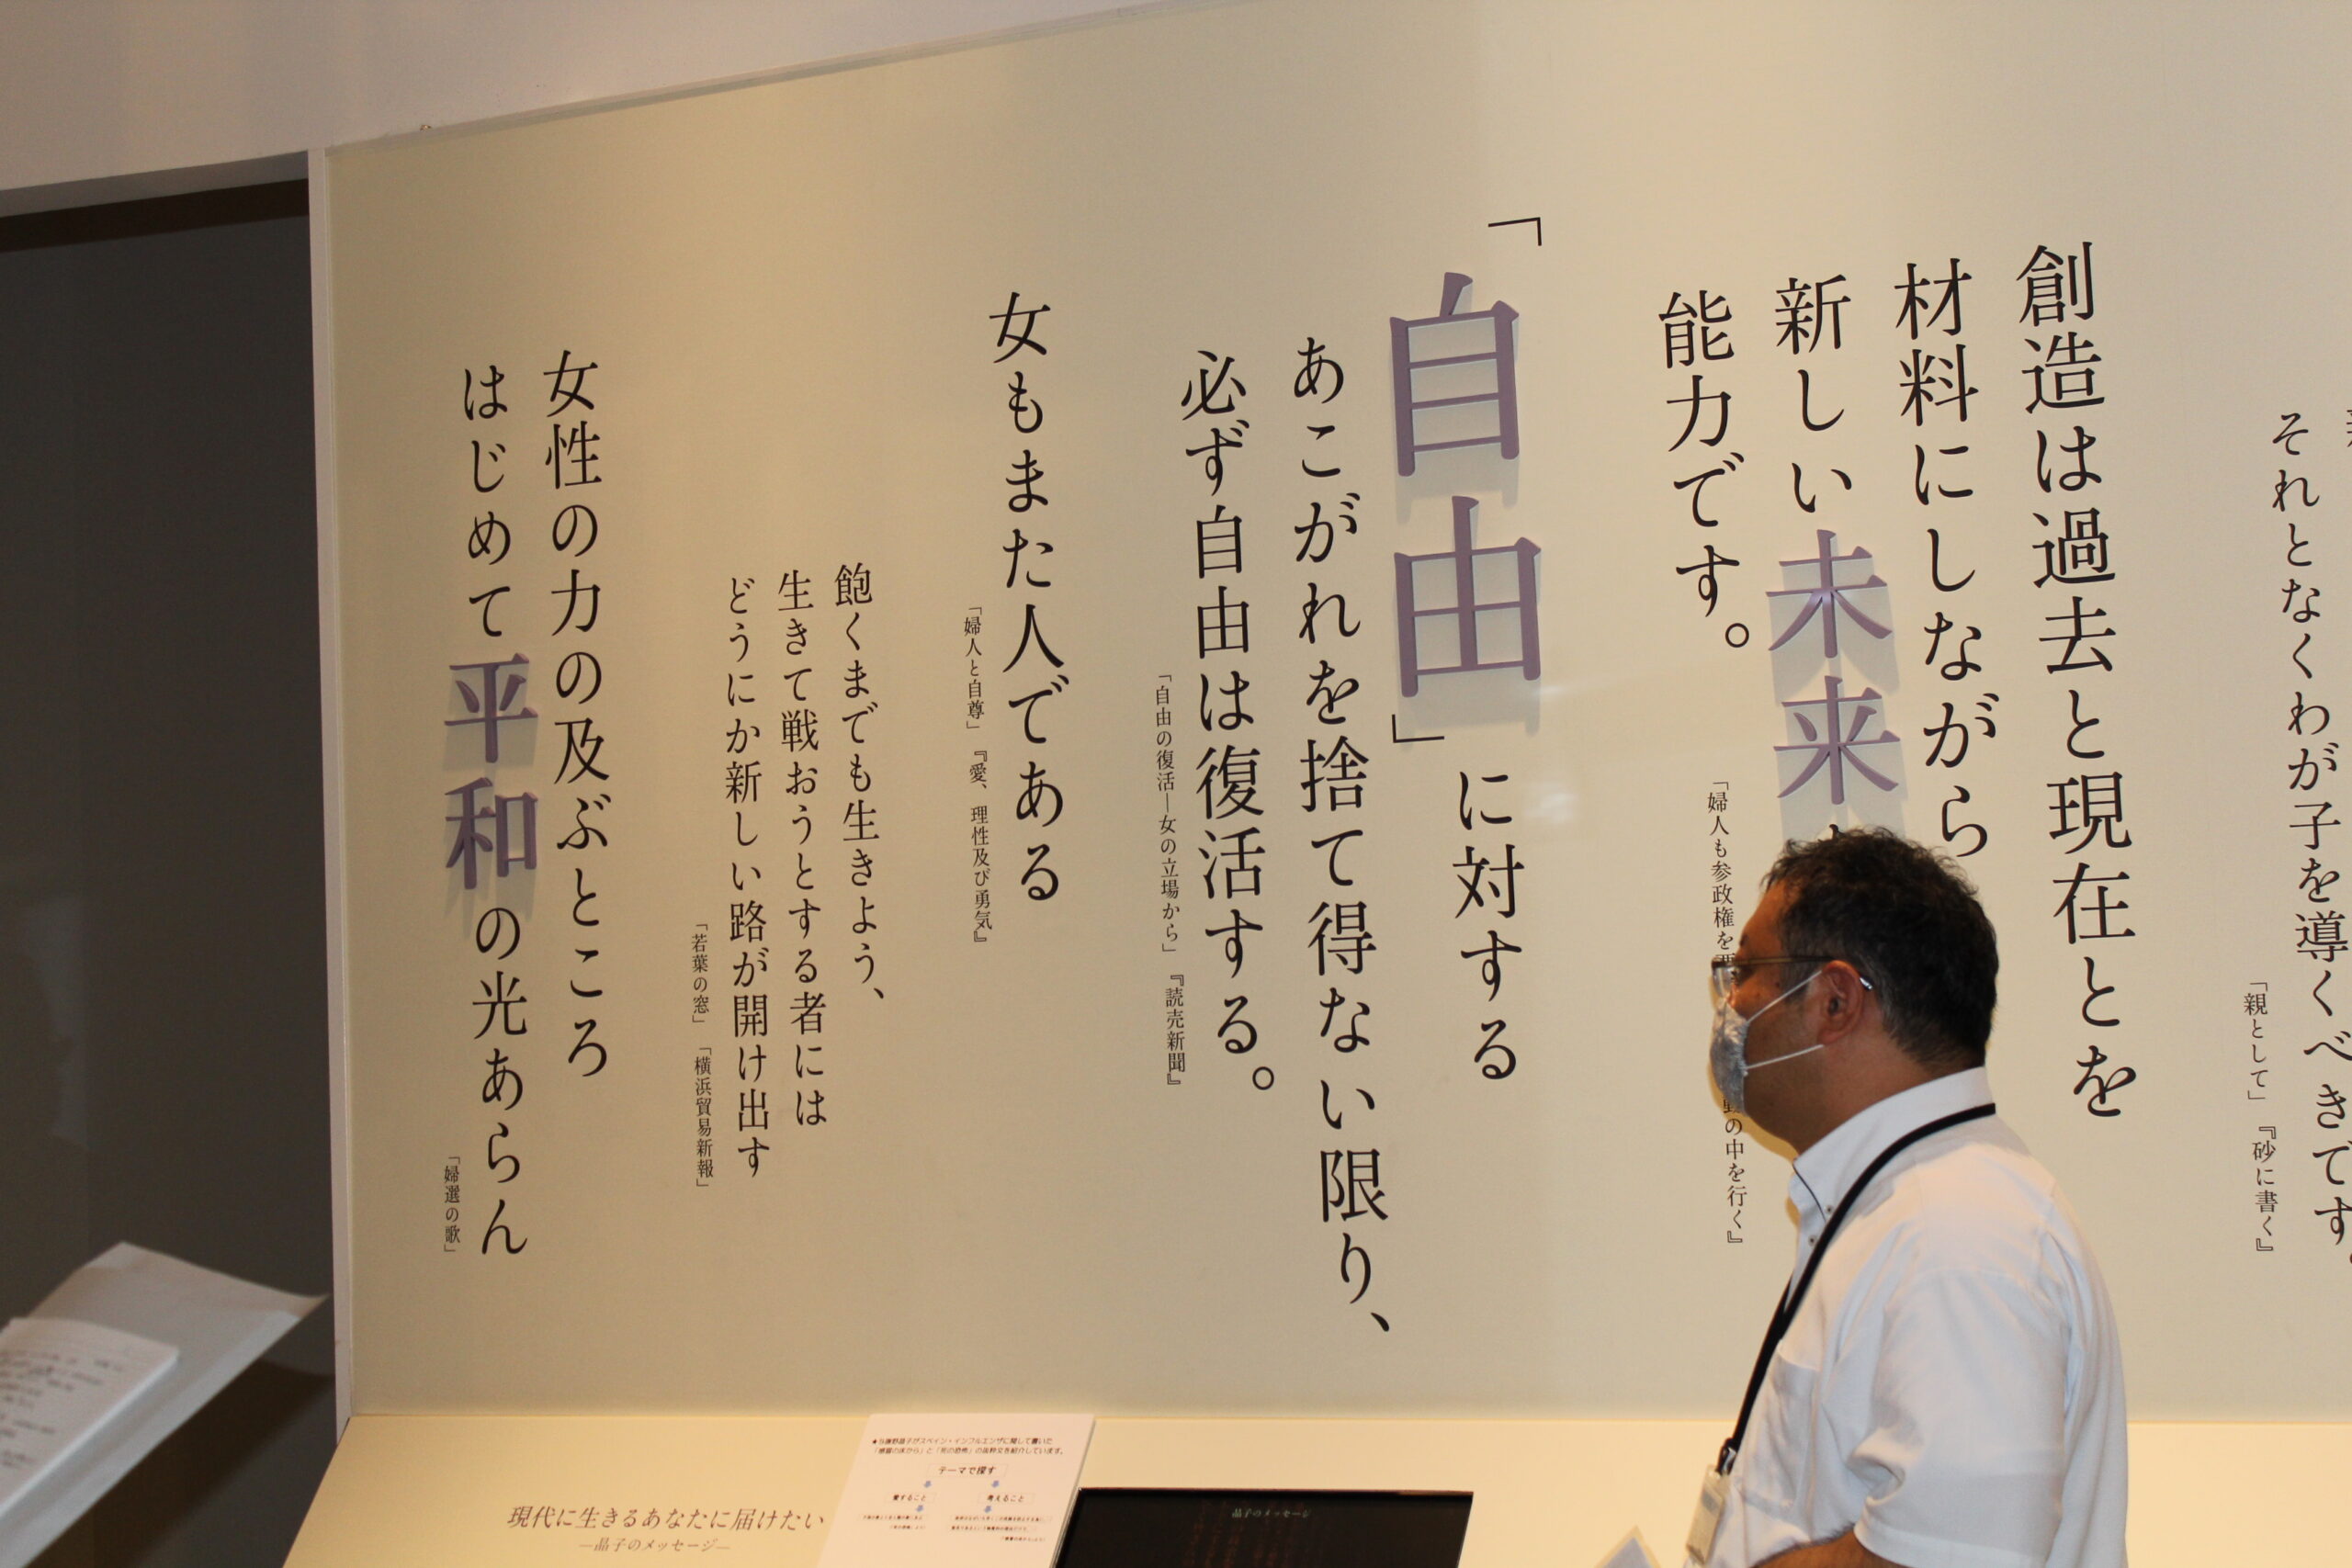 それとなくわが子を導くべきです。
「親として」『砂に書く』
創造は過去と現在とを
材料にしながら
新しい未来
能力です。
「婦人も参政権を
の中を行く』
「自由」に対する
あこがれを捨て得ない限り、
必ず自由は復活する。
「自由の復活―女の立場から」『読売新聞』
女もまた人である
「婦人と自尊」『愛、理性及び勇気』
飽くまでも生きよう、
生きて戦おうとする者には
どうにか新しい路が開け出す
「若葉の窓」「横浜貿易新報」
女性の力の及ぶところ
はじめて平和の光あらん
「婦選の歌」
現代に生きるあなたに届けたい
―晶子のメッセージ―
★与謝野晶子がスペイン・インフルエンザに関して書いた
「感冒の床から」と「死の恐怖」の抜粋文を紹介しています。
テーマで探す
愛すること
考えること
晶子のメッセージ